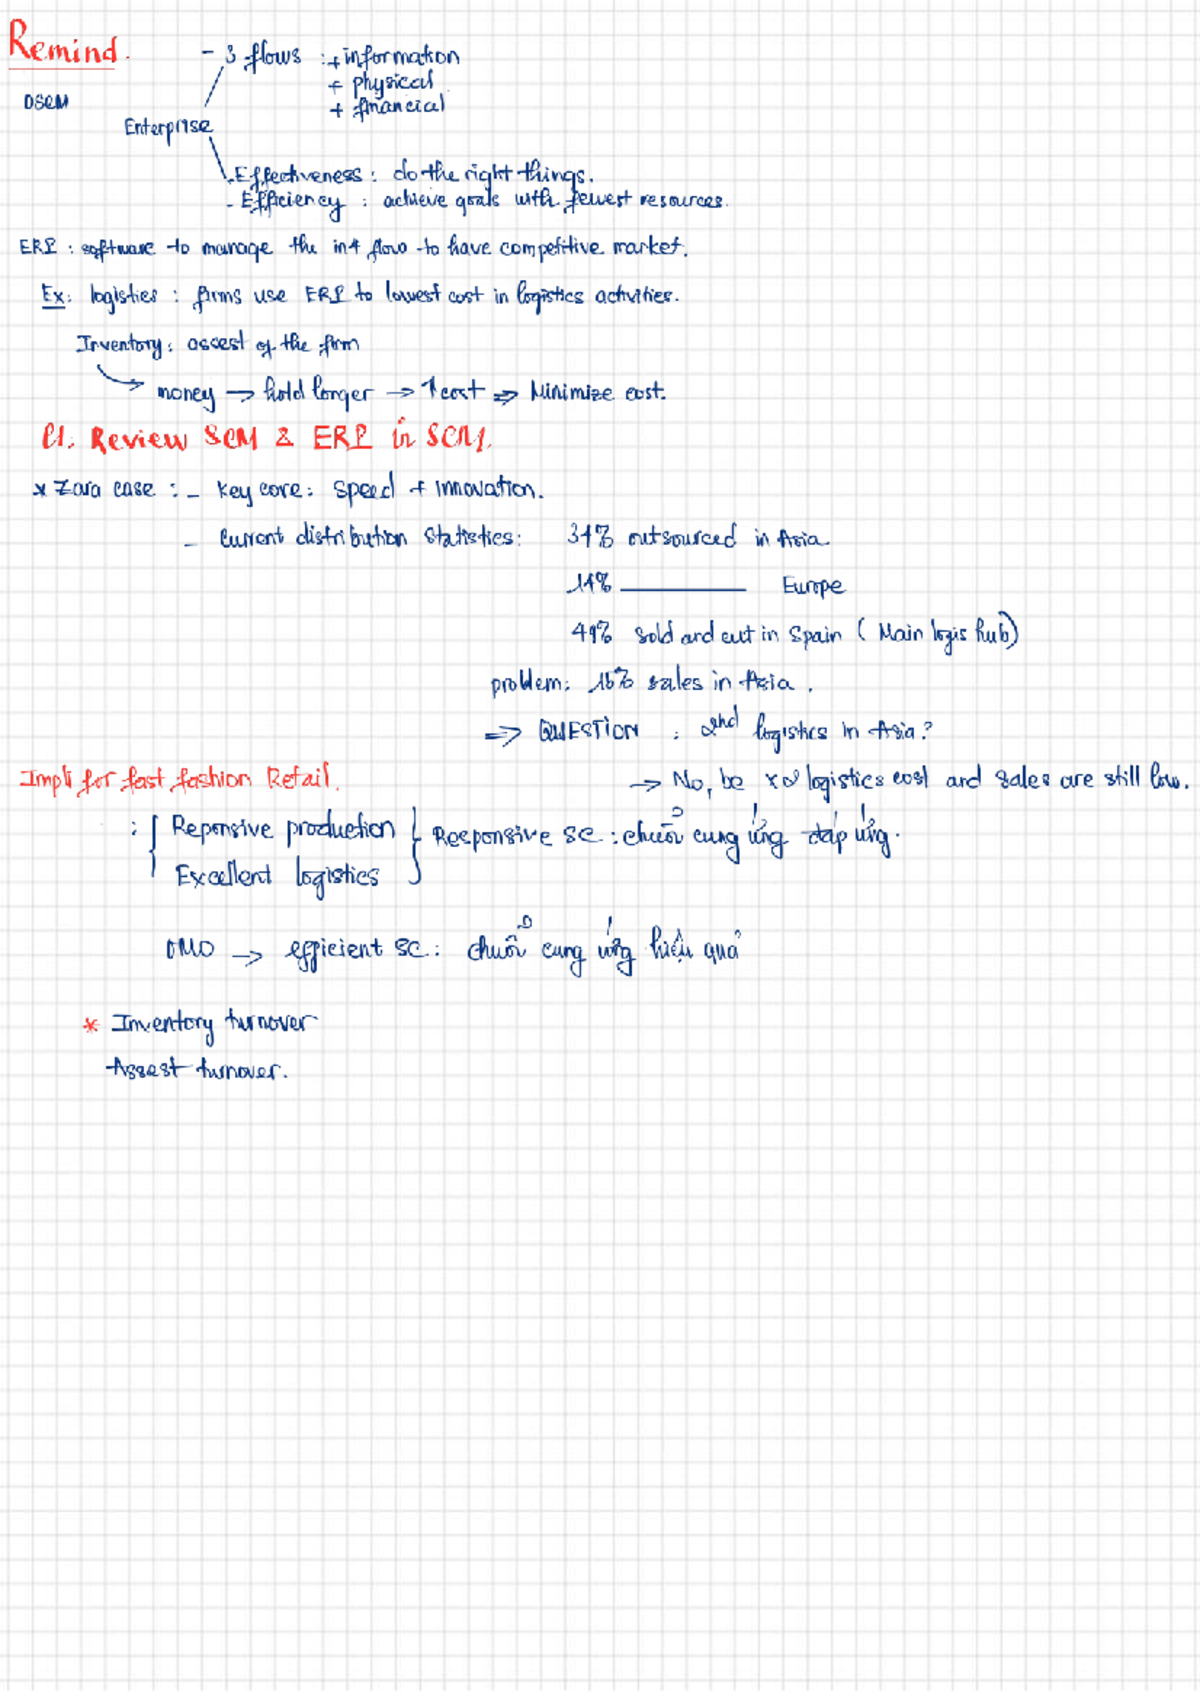 Remind.
- 3 flows : + information
+ physical
DSCM
+ financial
Enterprise
- Effectiveness : do the right things.
- Efficiency : achieve goals with fewest resources.
ERP : software to manage the in4 flow to have competitive market.
Ex: logistics : firms use ERP to lowest cost in logistics activities.
Inventory : assest of the firm
money → hold longer → ↑ cost ⇒ Minimize cost.
C1. Review SCM & ERP in SCM.
* Zara case : - Key core: speed + innovation.
- Current distribution statistics: 34% outsourced in Asia
14% ———— Europe
49% sold and cut in Spain ( Main logis hub)
problem: 15% sales in Asia .
⇒ QUESTION : 2nd logistics in Asia?
→ No, be x2 logistics cost and sales are still low.
Impli for fast fashion Retail.
: { Reponsive production } Responsive SC : chuỗi cung ứng đáp ứng.
Excellent logistics
OMO → efficient SC : chuỗi cung ứng hiệu quả
* Inventory turnover
Assest turnover.